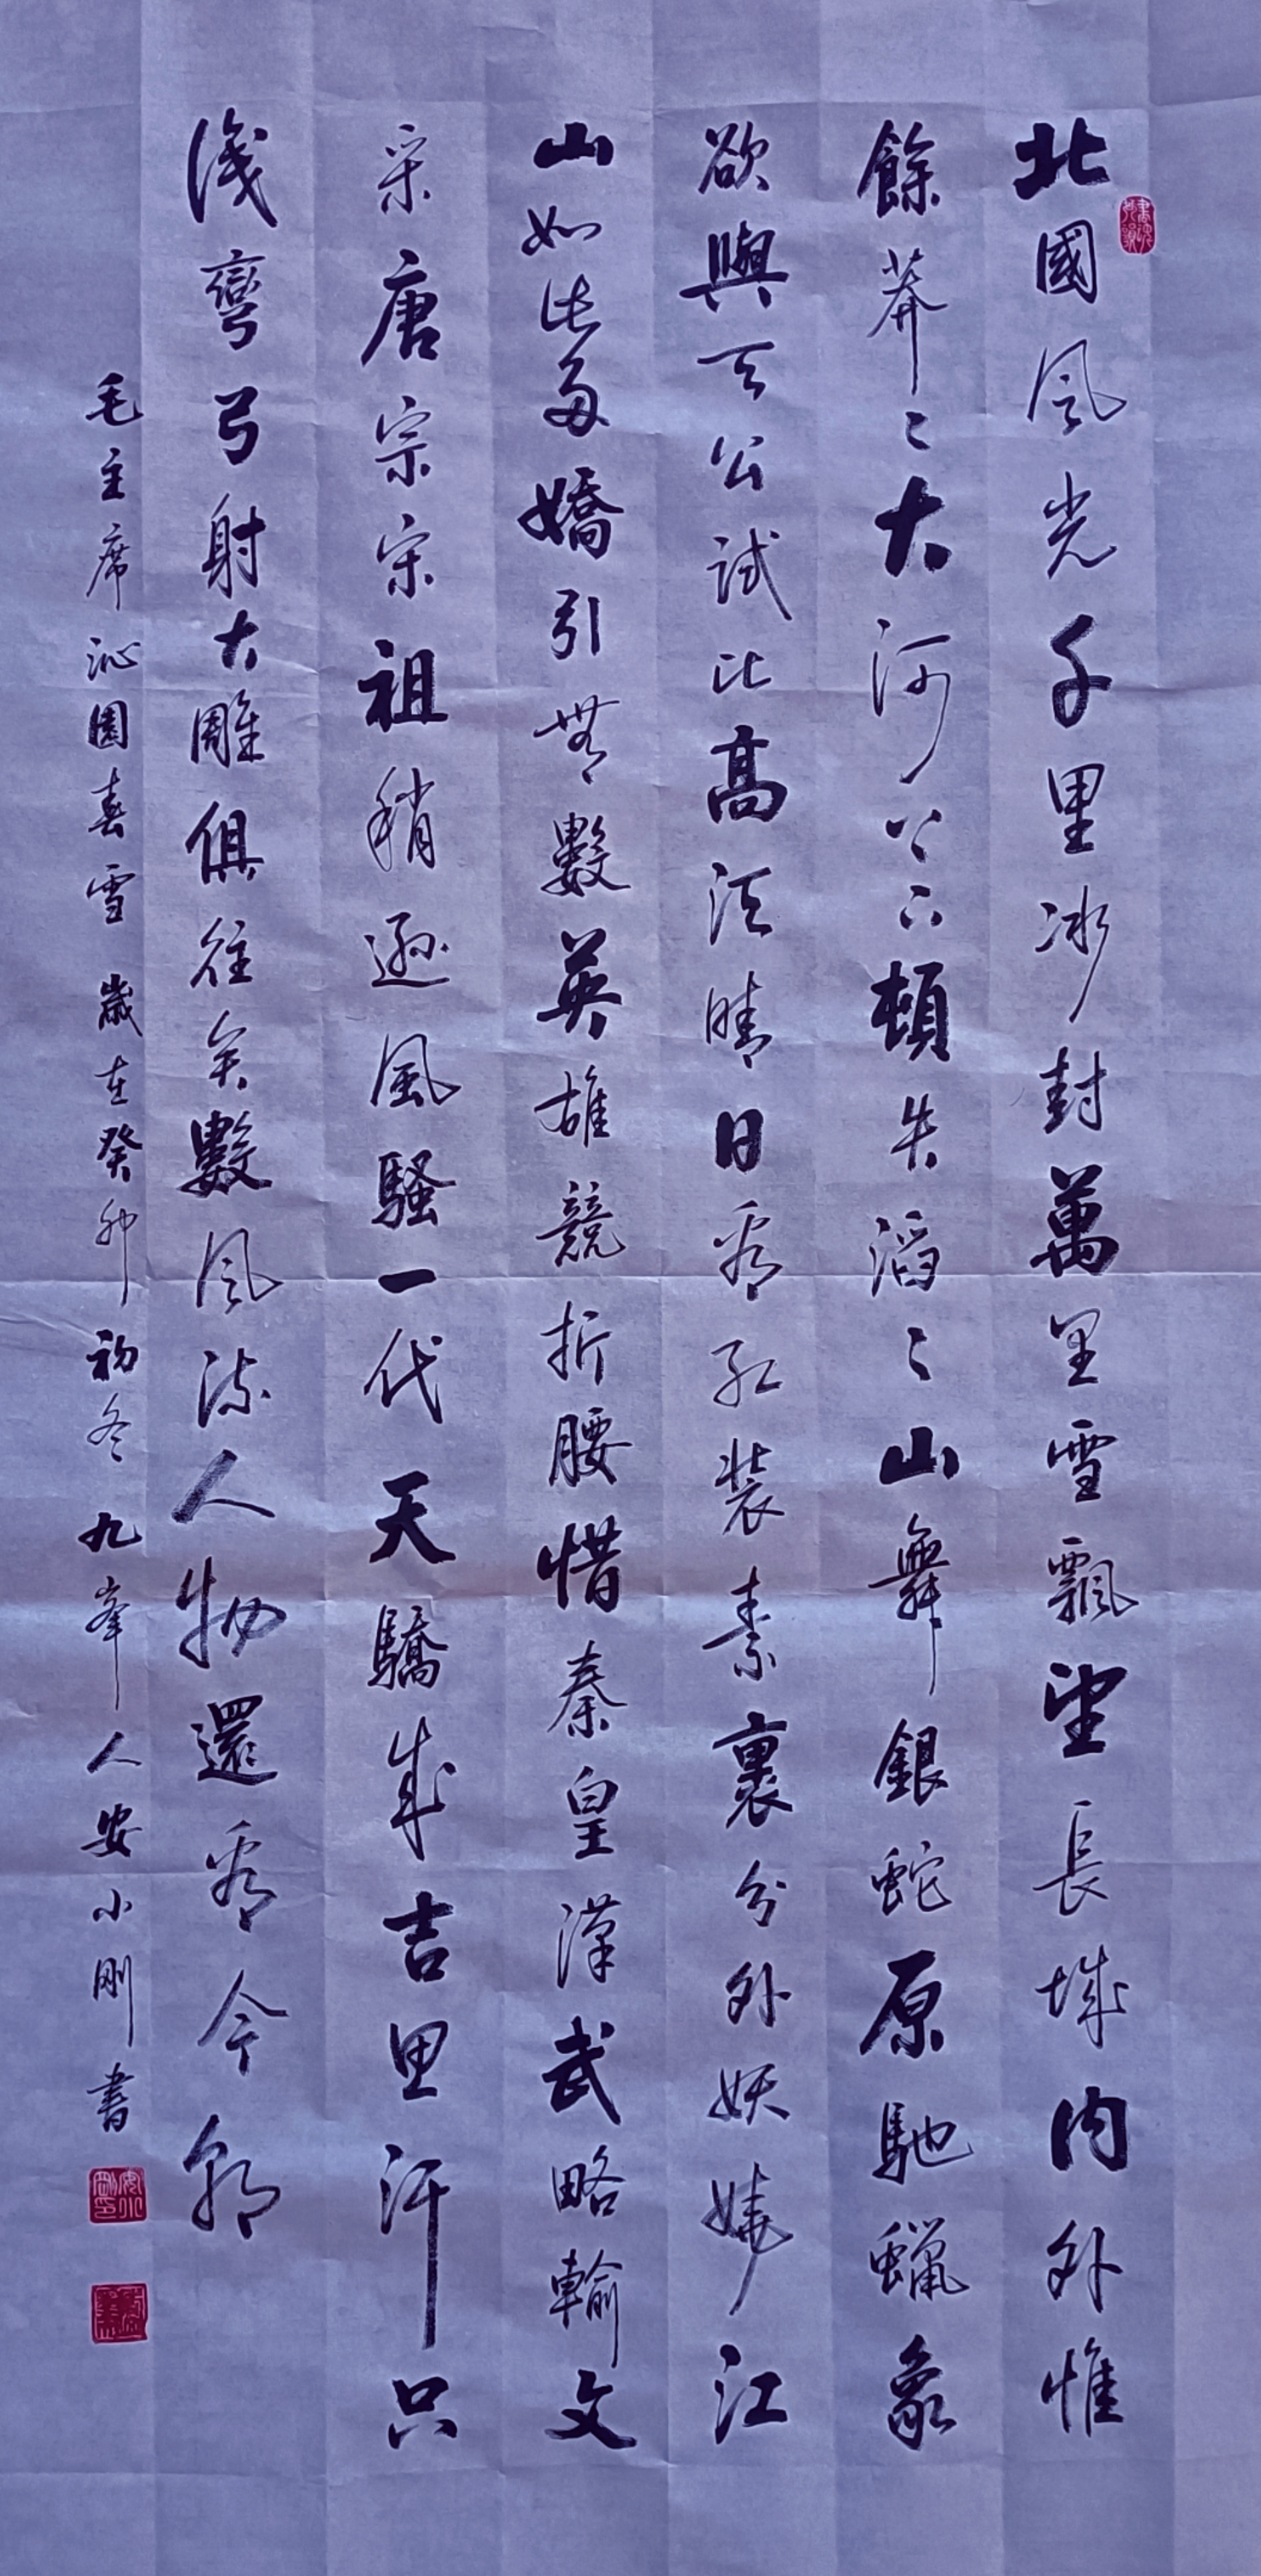 北國風光千里冰封萬里雪飄望長城内外惟
餘莽〻大河上下頓失滔〻山舞銀蛇原馳蠟象
欲與天公試比高須晴日看紅裝素裹分外妖嬈江
山如此多嬌引無數英雄競折腰惜秦皇漢武略輸文
采唐宗宋祖稍遜風騷一代天驕成吉思汗只
識彎弓射大雕俱往矣數風流人物還看今朝
毛主席沁園春雪 歲在癸卯初冬九峯人安小剛書